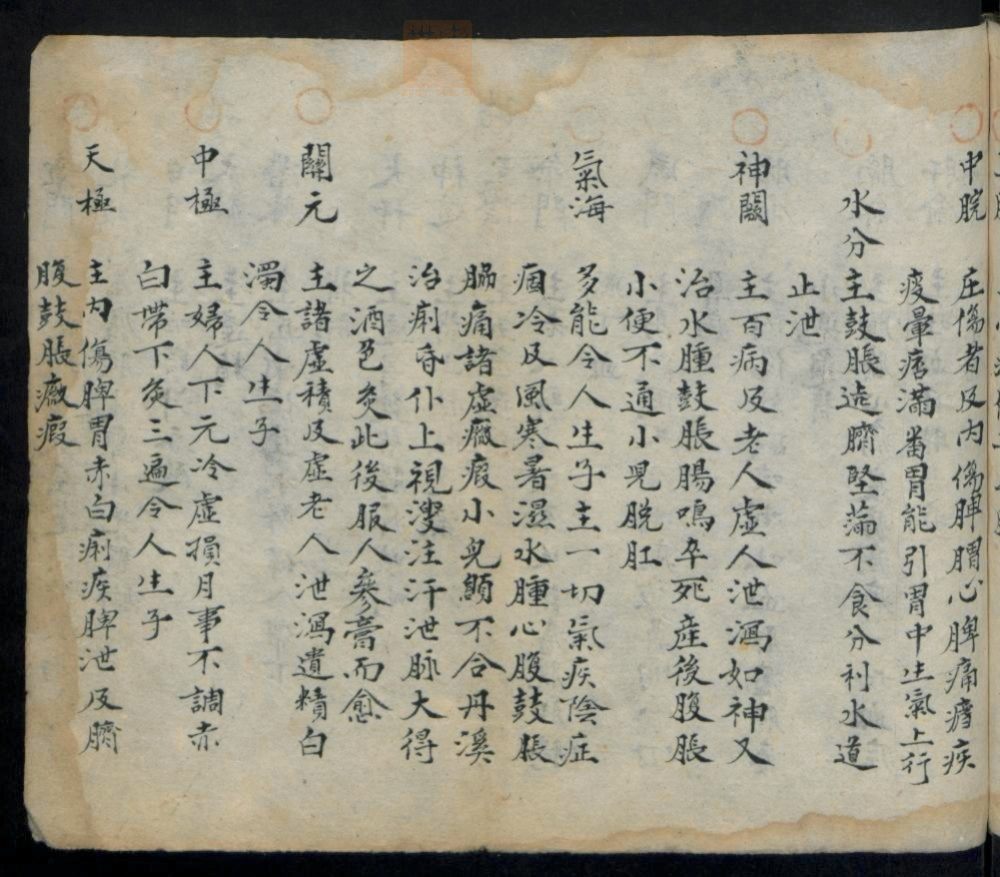 中脘 主傷者及內傷脾胃心脾痛瘧疾
痰暈痞滿番胃能引胃中生氣上行
水分 主鼓脹遶臍堅滿不食分利水道
止泄
神闕 主百病及老人虛人泄瀉如神又
治水腫鼓脹腸鳴卒死產後腹脹
小便不通小児脱肛
氣海 多能令人生子主一切氣疾陰症
痼冷及風寒暑濕水腫心腹鼓脹
脇痛諸虛癥瘕小兒顖不合丹溪
治痢昏仆上視溲注汗泄脉大得
之酒色灸此後服人參膏而愈
關元 主諸虛積及虛老人泄瀉遺精白
濁令人生子
中極 主婦人下元冷虛損月事不調赤
白帶下灸三遍令人生子
天極 主內傷脾胃赤白痢疾脾泄及臍
腹鼓脹癥瘕